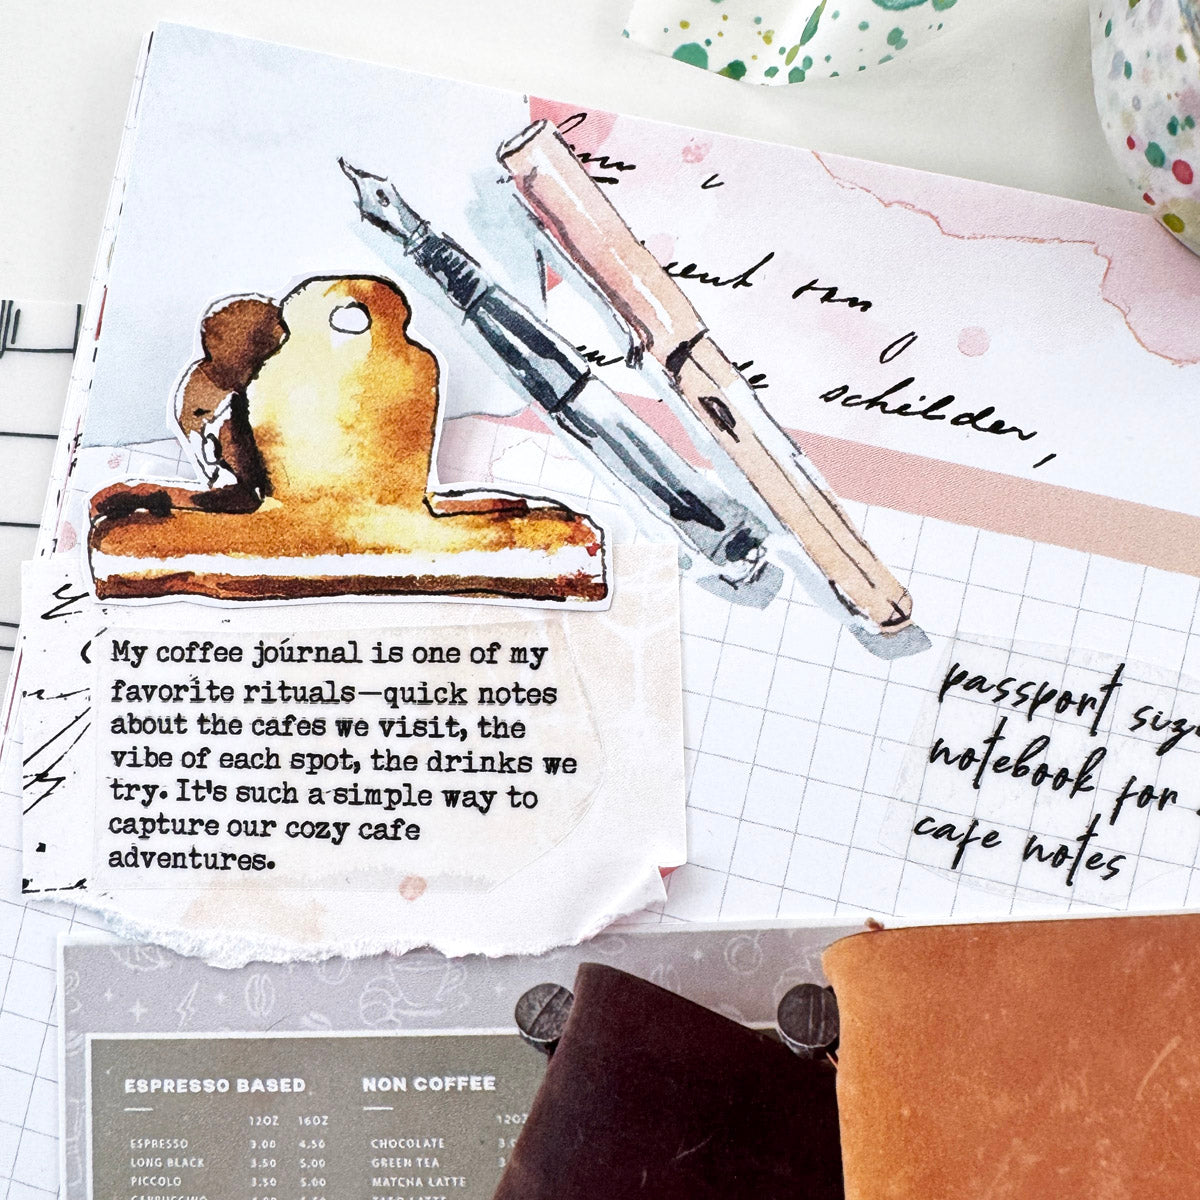 schilder,
My coffee journal is one of my
favorite rituals—quick notes
about the cafes we visit, the
vibe of each spot, the drinks we
try. It's such a simple way to
capture our cozy cafe
adventures.
passport
notebook for
cafe notes
ESPRESSO BASED
12OZ 16OZ
ESPRESSO 3.00 4.50
LONG BLACK 3.50 5.00
PICCOLO 3.50 5.00
NON COFFEE
12OZ
CHOCOLATE
GREEN TEA
MATCHA LATTE